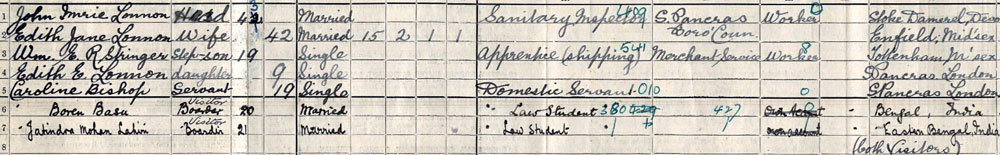 1 John Imrie Lonnon Head 42 Married Sanitary Inspector 409 S. Pancras Boro' Coun. Worker 0 Stoke Damerel, Devon
2 Edith Jane Lonnon Wife 42 Married 15 2 1 1 Enfield, Midsex
3 Wm. E. R Springer Step-son 19 Single Apprentice (shipping) 541 Merchant Service Worker 8 Tottenham M'sex
4 Edith E. Lonnon daughter 9 Single Pancras London
5 Caroline Bishop Servant 19 Single Domestic Servant 010 0 S Pancras London
6 Boren Basu Visitor Boarder 20 Married " Law Student 427 Bengal, India
7 " Jatindra Mohan Lahiri Visitor Boarder 21 Married " Law Student own account Eastern Bengal, India
8 (both Visitors)